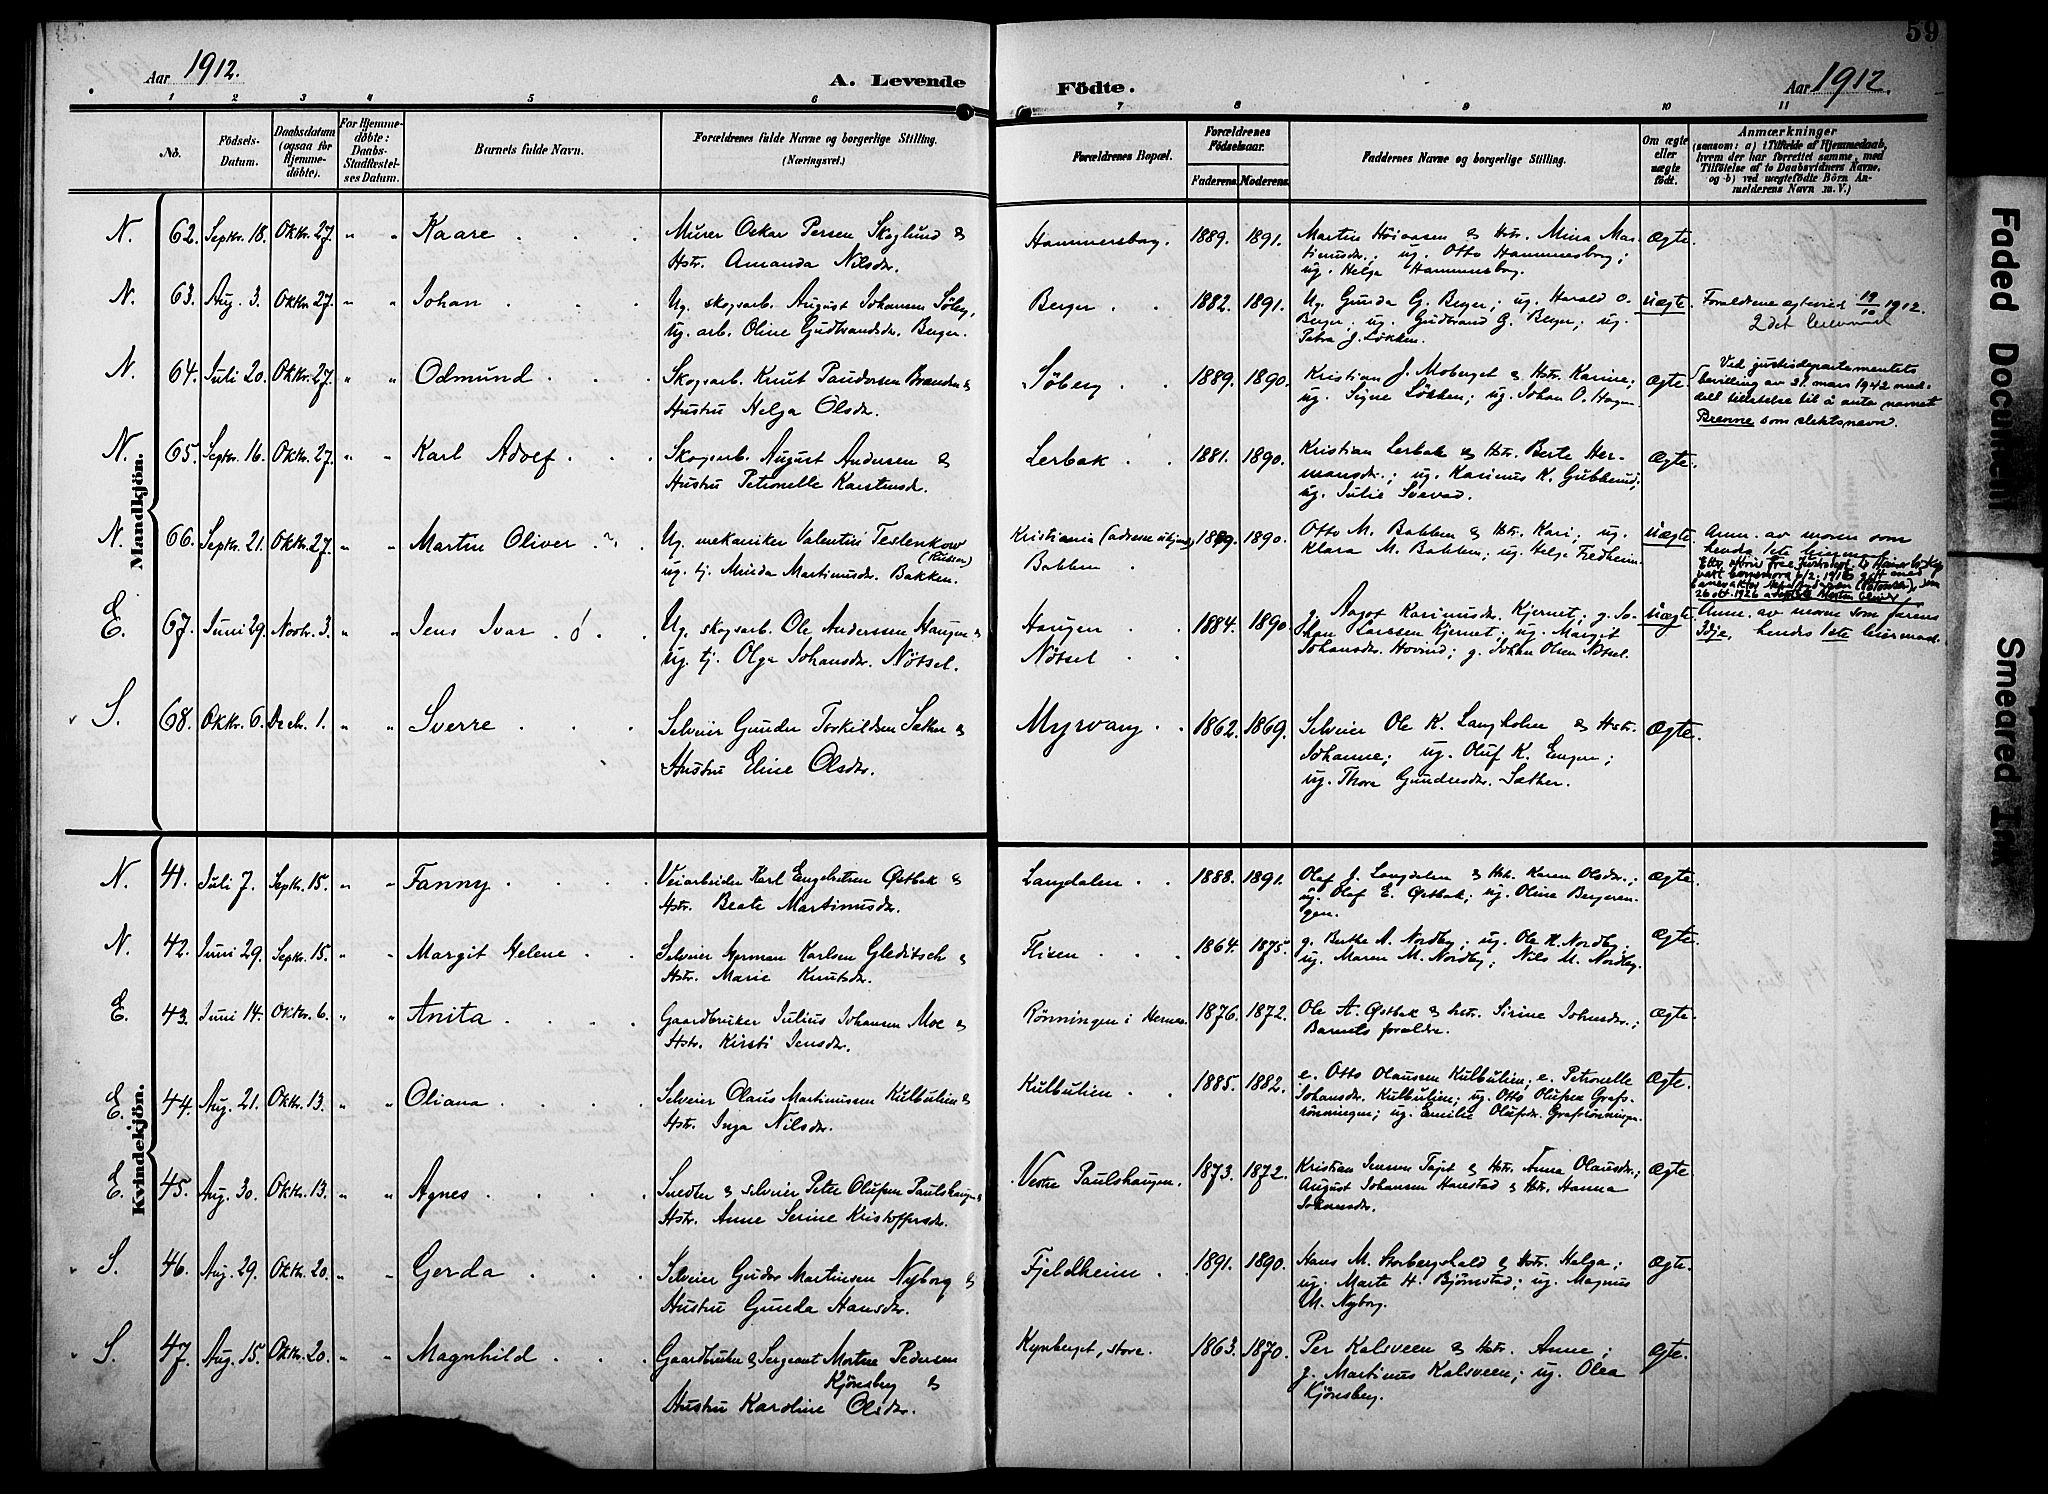 59
Aar 1912.
A. Levende Födte.
Aar 1912.
1 2 3 4 5 6 7 8 9 10 11
No.
Födsels-Datum.
Daabsdatum (ogsaa for Hjemmedöbte).
For Hjemmedöbte: Daabs-Stadfæstelses Datum.
Barnets fulde Navn.
Forældrenes fulde Navne og borgerlige Stilling. (Næringsvei.)
Forældrenes Bopæl.
Forældrenes Födselsaar.
Faderens. Moderens.
Faddernes Navne og borgerlige Stilling.
Om ægte eller uægte födt.
Anmærkninger
(saasom: a) i Tilfælde af Hjemmedaab, hvem der har forrettet samme, med Tilföielse af to Daabsvidners Navne, og b) ved uægtefödte Börn Anmelderens Navn m. V.)
Mandkjön.
N. 62. Septr. 18. Oktr. 27. " " Kaare
Murer Oskar Persen Skoglund &
Hstr. Amanda Nilsdr.
Hammersborg. 1889. 1891.
Martin Høiaasen & Hstr. Mina Mar-
tinusdr.; ug. Otto Hammersborg;
ug. Helga Hammersborg.
Ægte.
N. 63. Aug. 3. Oktr. 27. " " Johan
Ug. skogsarb. August Johansen Söberg,
Ug. arb. Oline Gudbrandsdr. Berger.
Berger 1882. 1891.
Ug. Gunda G. Berger; ug. Harald O.
Berger; ug. Gudbrand G. Berger; ug.
Petra J. Løkken.
Uægte.
Forældrene egteviet 19/10 1912.
2det leiermaal
N. 64. Juli 20. Oktr. 27. " " Odmund
Skogsarb. Knut Paudersen Brænden &
Hustru Helga Olsdr.
Söberg 1889. 1890.
Kristian J. Moberget & Hstr. Karine;
ug. Signe Løkken; ug. Johan O. Hagen.
Ægte.
Ved justisdepartementets
bevilling av 31. mars 1942 med-
delt tillatelse til å anta navnet
Brenne som slektsnavn.
N. 65. Septr. 16. Oktr. 27. " " Karl Adolf
Skogsarb. August Andersen &
Hustru Petronelle Karstensdr.
Lerbak 1881. 1890.
Kristian Lerbak & Hstr. Berte Her-
mansdr.; ug. Karinus K. Gubberud;
ug. Julie Svevad.
Ægte.
N. 66. Septr. 21. Oktr. 27. " " Martin Oliver
Ug. mekaniker Valentin Testenkow
(Russer)
ug. tj. Minda Martinusdr. Bakken.
Kristiania
Bakken. 1889. 1890.
Otto M. Bakken & Hstr. Kari; ug.
Klara M. Bakken; ug. Helge Fredheim
Uægte.
Anm. av moren som
hendes 1ste leiermaal
E. 67. Juni 29. Novbr. 3. " " Jens Ivar
Ug. skogsarb. Ole Anderssen Haugen &
ug. tj. Olga Johansdr. Nötsel.
Haugen
Nötsel 1884. 1890.
g. Aagot Karinusdr. Kjernet; g. Jo-
han Larssen Kjernet; ug. Margit
Johansdr. Hovind; g. Johan Olsen Nötsel.
Uægte
Anm. av moren som farens
2dje, hendes 1ste leiermaal.
S. 68. Oktr. 6. Decbr. 1. " " Sverre
Selveier Gunder Torkildsen Sæther &
Hustru Eline Olsdr.
Myrvang 1862. 1869.
Selveier Ole K. Langholen & Hstr.
Johanne; ug. Oluf K. Engen;
ug. Thora Gundersdr. Sæther.
Ægte.
Kvindekjön.
N. 41. Juli 7. Septr. 15. " " Fanny
Veiarbeider Karl Engelsetsen Østbak &
Hstr. Beate Martinusdr.
Langdalen 1888. 1891.
Olaf J. Langdalen & Hstr. Karen Olsdr.;
ug. Olaf E. Østbak; ug. Oline Bergeren-
gen.
Ægte.
N. 42. Juni 29. Septr. 15. " " Margit Helene
Selveier Herman Karlsen Gleditsch &
Hstr. Marie Knutsdr.
Flisen 1864. 1875.
g. Berthe A. Nordby; ug. Ole H. Nordby;
ug. Maren M. Nordby; Nils M. Nordby.
Ægte.
E. 43. Juni 14. Oktr. 6. " " Anita
Gaardbruker Julius Johansen Moe &
Hstr. Kirsti Jensdr.
Rønningen i Hernes. 1876. 1872.
Ole A. Østbak & hstr. Sirine Johnsdr.;
Barnets forældre.
Ægte.
E. 44. Aug. 21. Oktr. 13. " " Oliana
Selveier Olaus Martinussen Kulbulien &
Hstr. Inga Nilsdr.
Kulbulien 1885. 1882.
e. Otto Olaussen Kulbulien; e. Petronelle
Johansdr. Kulbulien; ug. Otto Olufsen Grafs-
rönningen; ug. Emilie Olufsdr. Grafsrönningen.
Ægte.
E. 45. Aug. 30. Oktr. 13. " " Agnes
Snedker & selveier Peter Olufsen Paulshaugen &
Hstr. Anne Serine Kristoffersdr.
Vestre Paulshaugen. 1873. 1872.
Kristian Jensen Tajet & Hstr. Anna Olausdr.;
August Johansen Harestad & Hstr. Hanna
Johansdr.
Ægte
S. 46. Aug. 29. Oktr. 20. " " Gerda
Selveier Gudr. Martinsen Nyborg &
Hustru Gunda Hansdr.
Fjeldheim 1891. 1890.
Hans M. Storbergshald & Hstr. Helga;
ug. Marte H. Bjørnstad; ug. Magnus
M. Nyborg.
Ægte.
S. 47. Aug. 15. Oktr. 20. " " Magnhild
Gaardbruker & Sergeant Morten Pedersen
Kjönsberg &
Hustru Karoline Olsdr.
Kynberget, store. 1863. 1870.
Per Kalsveen & Hstr. Anne;
g. Martinus Kalsveen; ug. Olea
Kjönsberg.
Ægte.
Faded Document
Smeared Ink